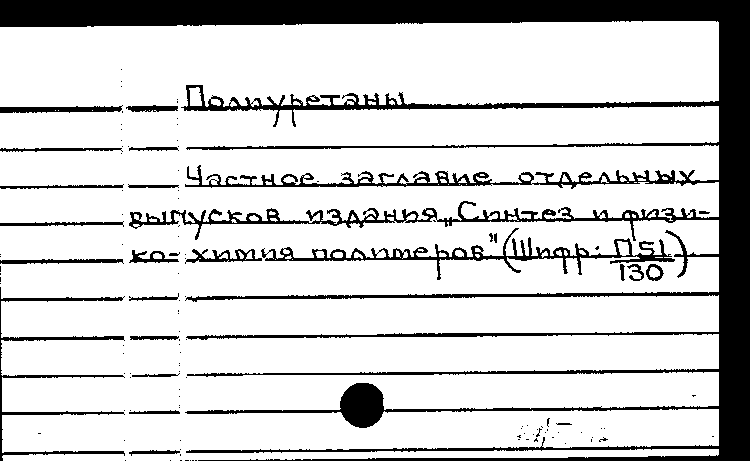 Полиуретаны.
Частное заглавие отдельных
выпусков издания „Синтез и физи-
ко-химия полимеров" (Шифр: П51/130).